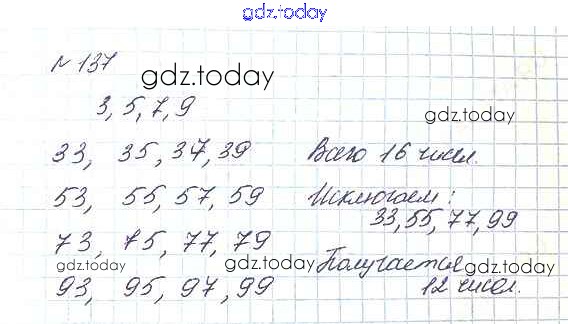 gdz.today
№ 137
gdz.today
3, 5, 7, 9
gdz.today
33, 35, 37, 39
Всего 16 чисел.
53, 55, 57, 59
Исключаем:
33, 55, 77, 99
73, 75, 77, 79
gdz.today
gdz.today
Получается
gdz.today
93, 95, 97, 99
12 чисел.